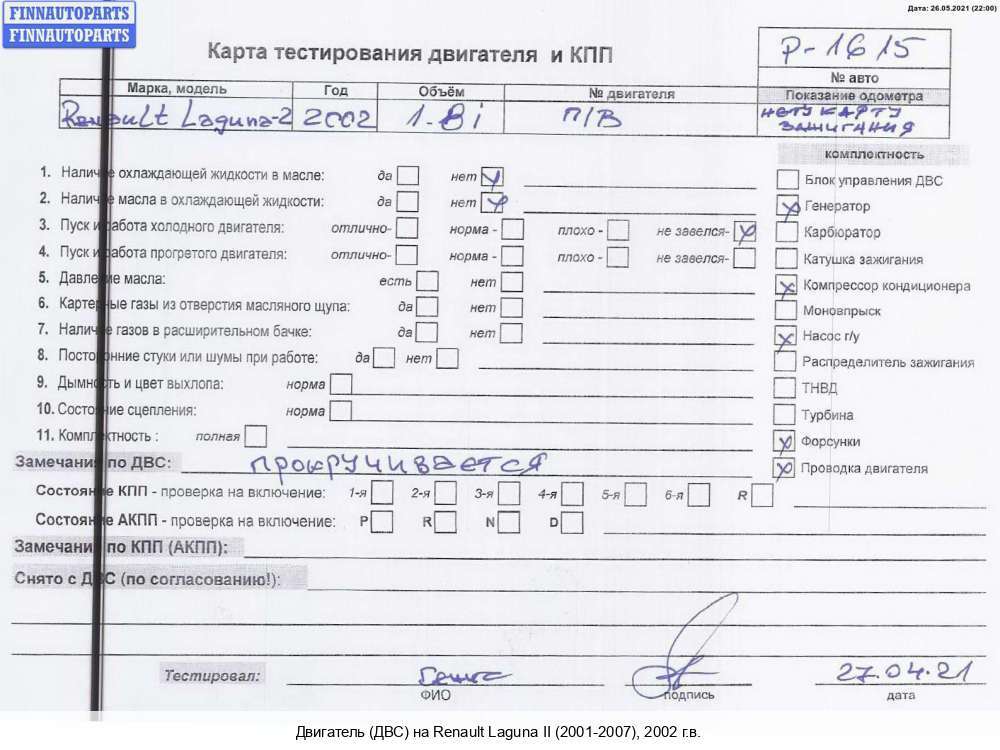 FINNAUTOPARTS
FINNAUTOPARTS
Дата: 26.05.2021 (22:00)
Карта тестирования двигателя и КПП
P-1615
№ авто
Марка, модель Год Объём № двигателя Показание одометра
Renault Laguna-2 2002 1.8i П/В НЕТУ КАРТУ ЗАЖИГАНИЯ
комплектность
1. Наличие охлаждающей жидкости в масле: да нет
Блок управления ДВС
2. Наличие масла в охлаждающей жидкости: да нет
Генератор
3. Пуск и работа холодного двигателя: отлично- норма - плохо - не завелся-
Карбюратор
4. Пуск и работа прогретого двигателя: отлично- норма - плохо - не завелся-
Катушка зажигания
5. Давление масла: есть нет
Компрессор кондиционера
6. Картерные газы из отверстия масляного щупа: да нет
Моновпрыск
7. Наличие газов в расширительном бачке: да нет
Насос г/у
8. Посторонние стуки или шумы при работе: да нет
Распределитель зажигания
9. Дымность и цвет выхлопа: норма
ТНВД
10. Состояние сцепления: норма
Турбина
11. Комплектность : полная
Форсунки
Замечания по ДВС: прокручивается
Проводка двигателя
Состояние КПП - проверка на включение: 1-я 2-я 3-я 4-я 5-я 6-я R
Состояние АКПП - проверка на включение: P R N D
Замечания по КПП (АКПП):
Снято с ДВС (по согласованию!):
Тестировал: 27.04.21
ФИО подпись дата
Двигатель (ДВС) на Renault Laguna II (2001-2007), 2002 г.в.